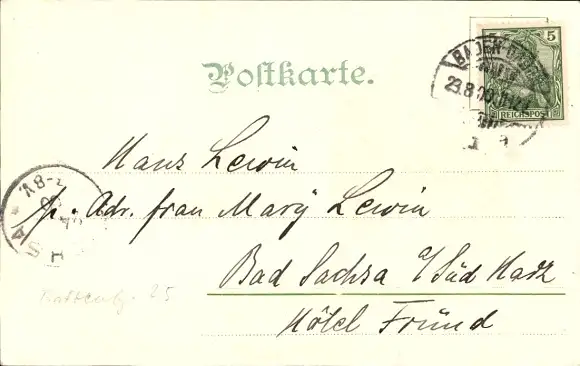 5
BADEN-BADEN
23.8.00.
1
REICHSPOST
Postkarte.
Hans Lewin
p. Adr. frau Mary Lewin
Bad Sachsa a/Süd Harz
Hôtel Freund
8-9V.
SACHSA
25